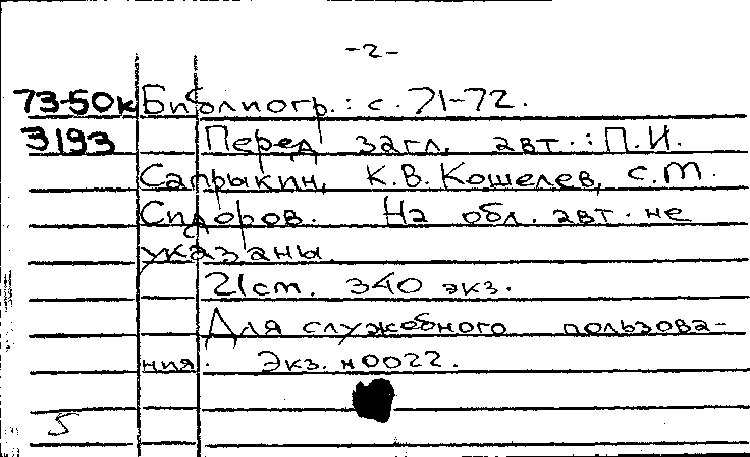 -2-
73-50к Библиогр.: с. 71-72.
3193 Перед загл. авт.: П.И.
Сапрыкин, К.В. Кошелев, С.М.
Сидоров. На обл. авт. не
указаны.
21cm. 340 экз.
Для служебного пользова-
ния. Экз. н0022.
5